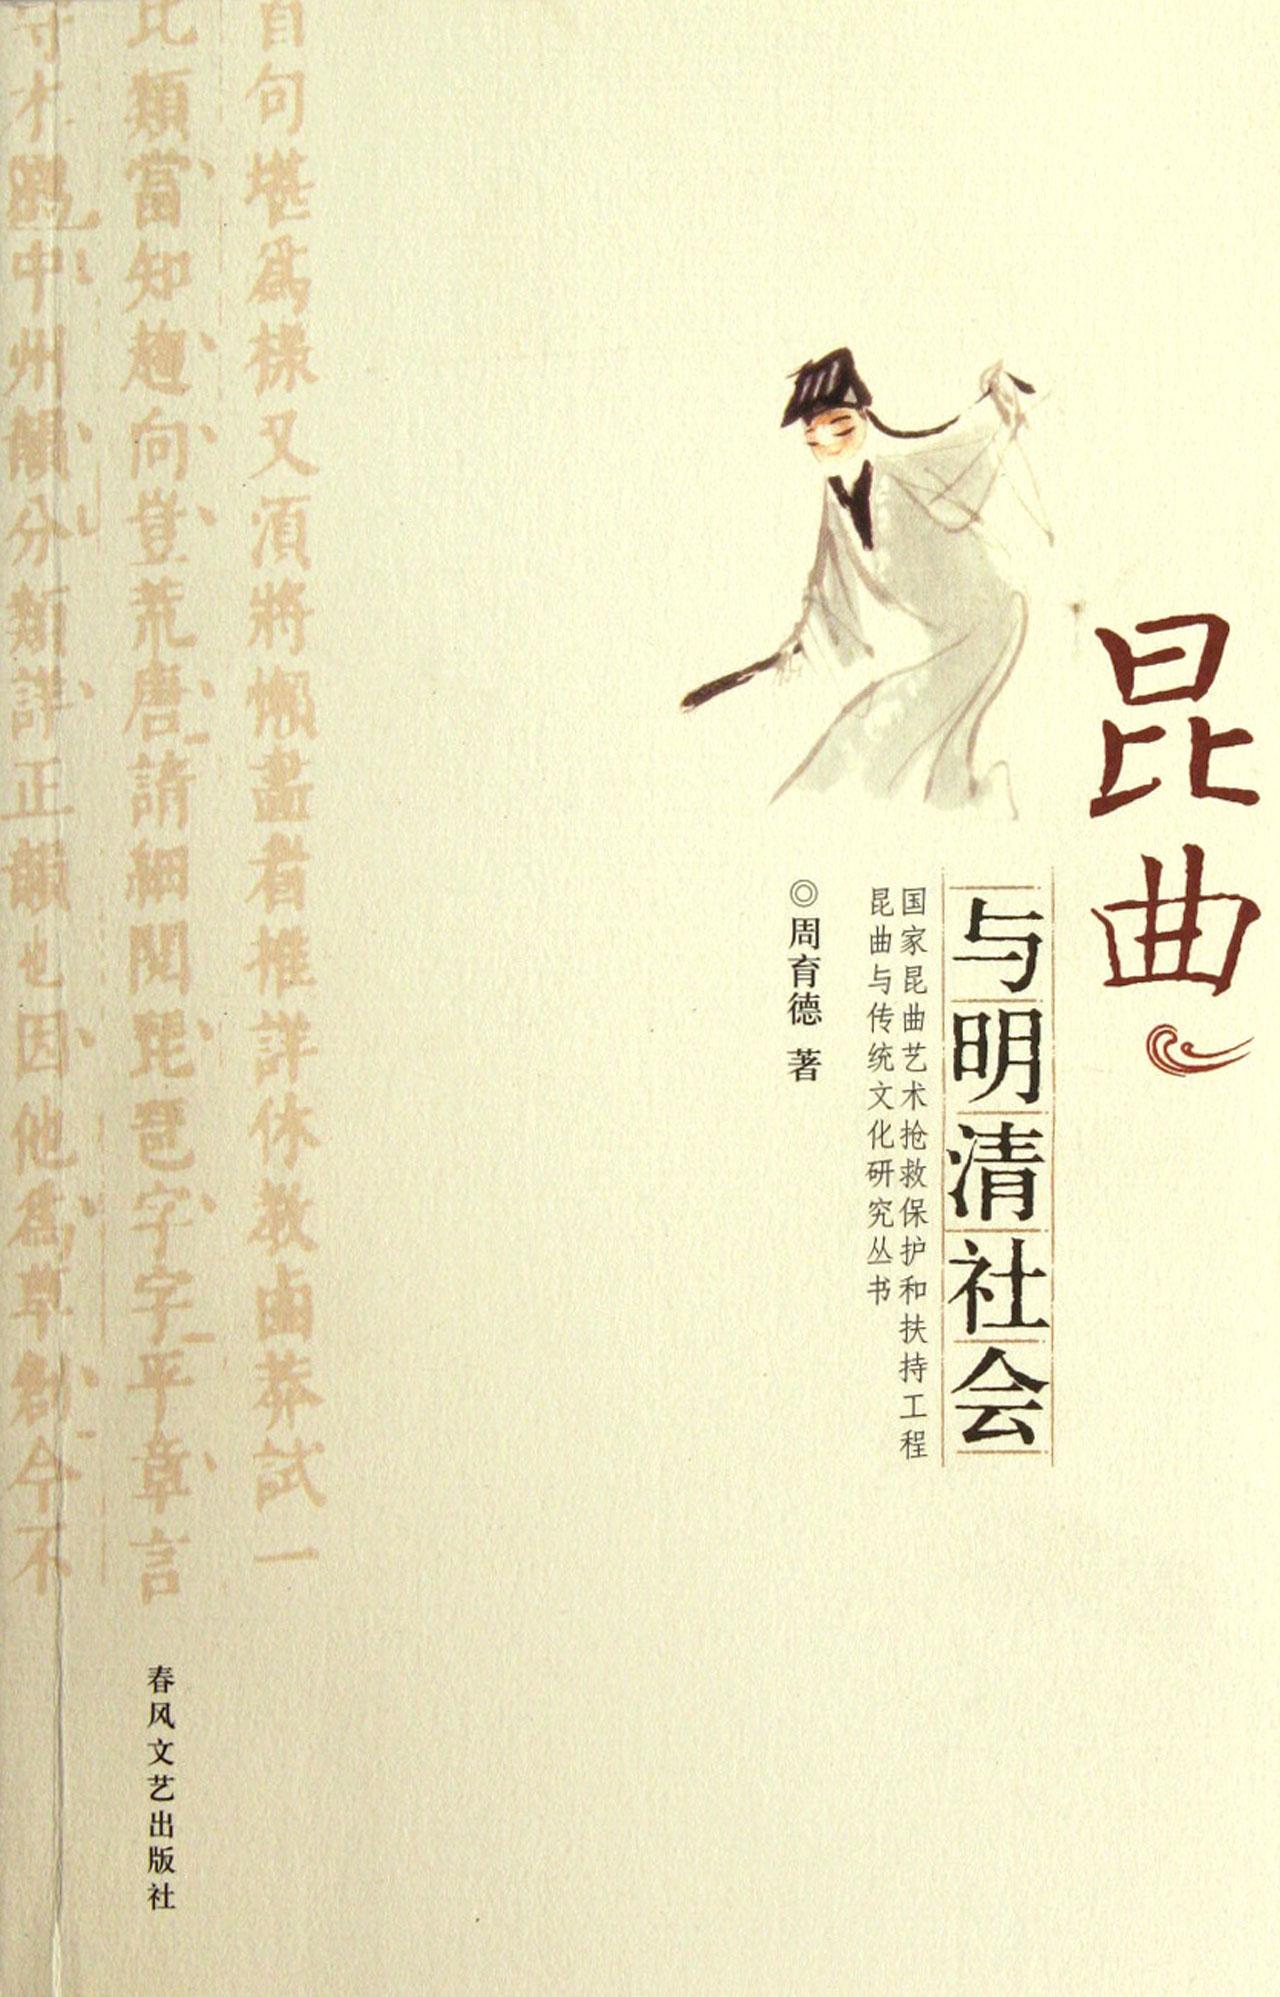 昆曲
与明清社会
国家昆曲艺术抢救保护和扶持工程
昆曲与传统文化研究丛书
◎周育德 著
自句堪爲樣又須將懶畫眉推詳休教鹵莽試一
比類當知趨向豈荒唐請細閱琵琶字字平章言
不獨中州韻分類詳正韻也因他爲草創今不
春风文艺出版社